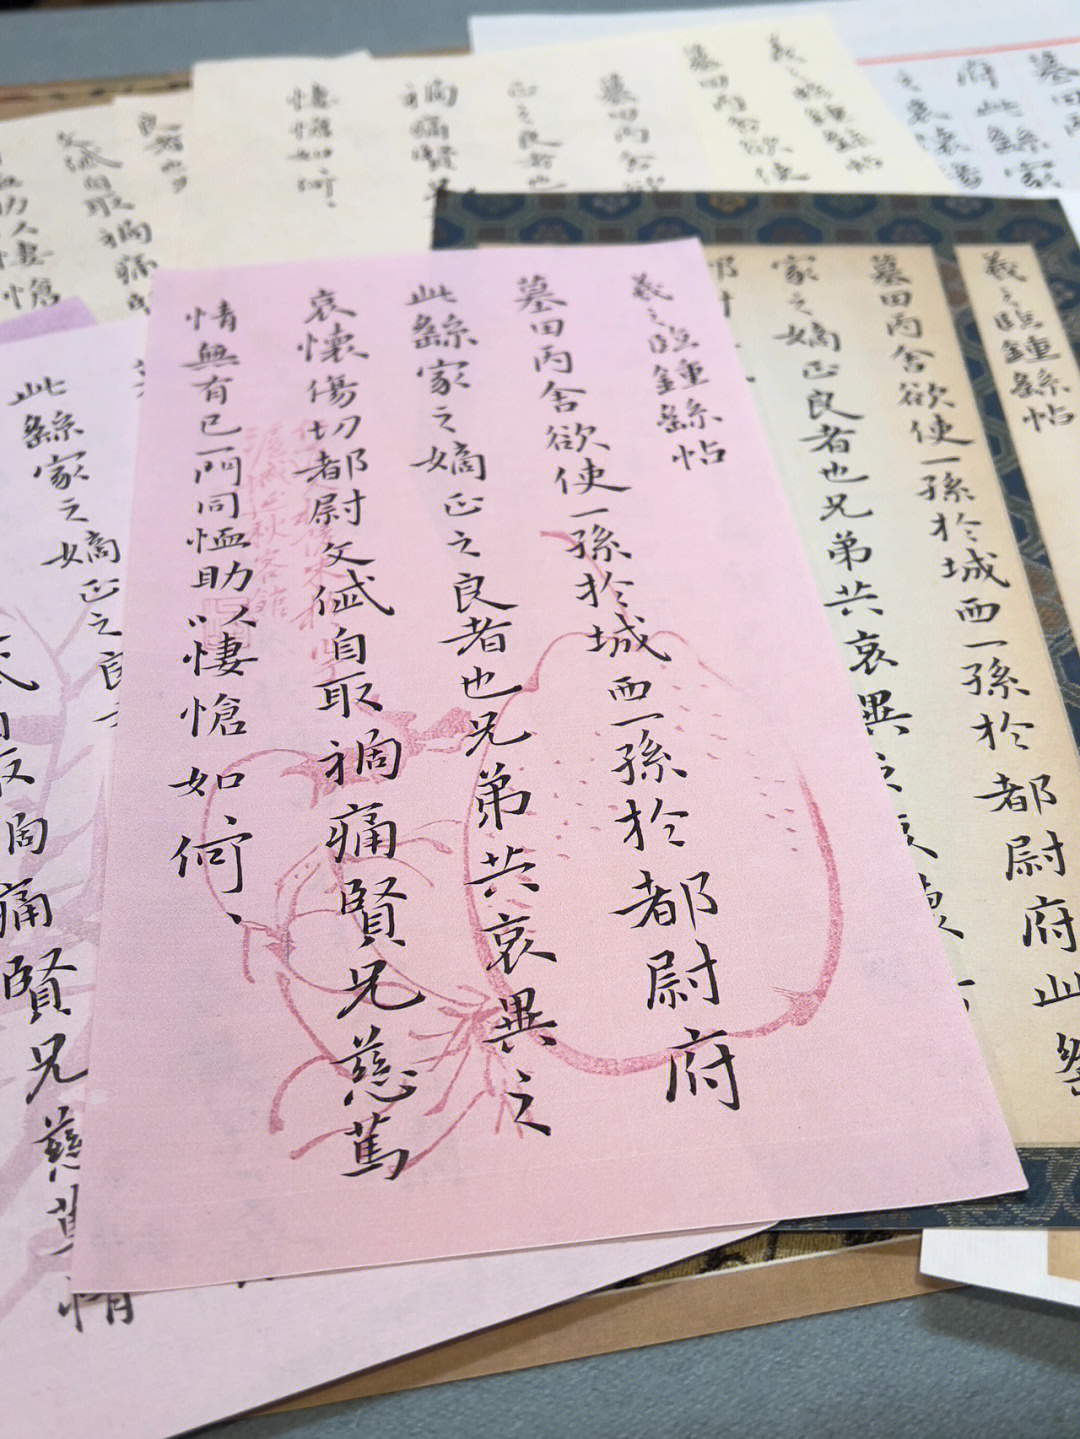 羲之臨鍾繇帖
墓田丙舍欲使一孫於城西一孫於都尉府
此繇家之嫡正之良者也兄弟共哀異之
哀懷傷切都尉文岱自取禍痛賢兄慈篤
情無有已一門同恤助以悽愴如何
羲之臨鍾繇帖
墓田丙舍欲使一孫於城西一孫於都尉府此繇
家之嫡正良者也兄弟共哀異之哀懷
此繇家之嫡正之良
自取禍痛賢兄慈篤情
羲之臨鍾繇帖
墓田丙舍欲使
墓田丙舍欲
正之良者也
禍痛賢兄
悽愴如何
良者也
文岱自取禍痛
助以悽愴
墓田丙
府此繇家
之哀懷傷